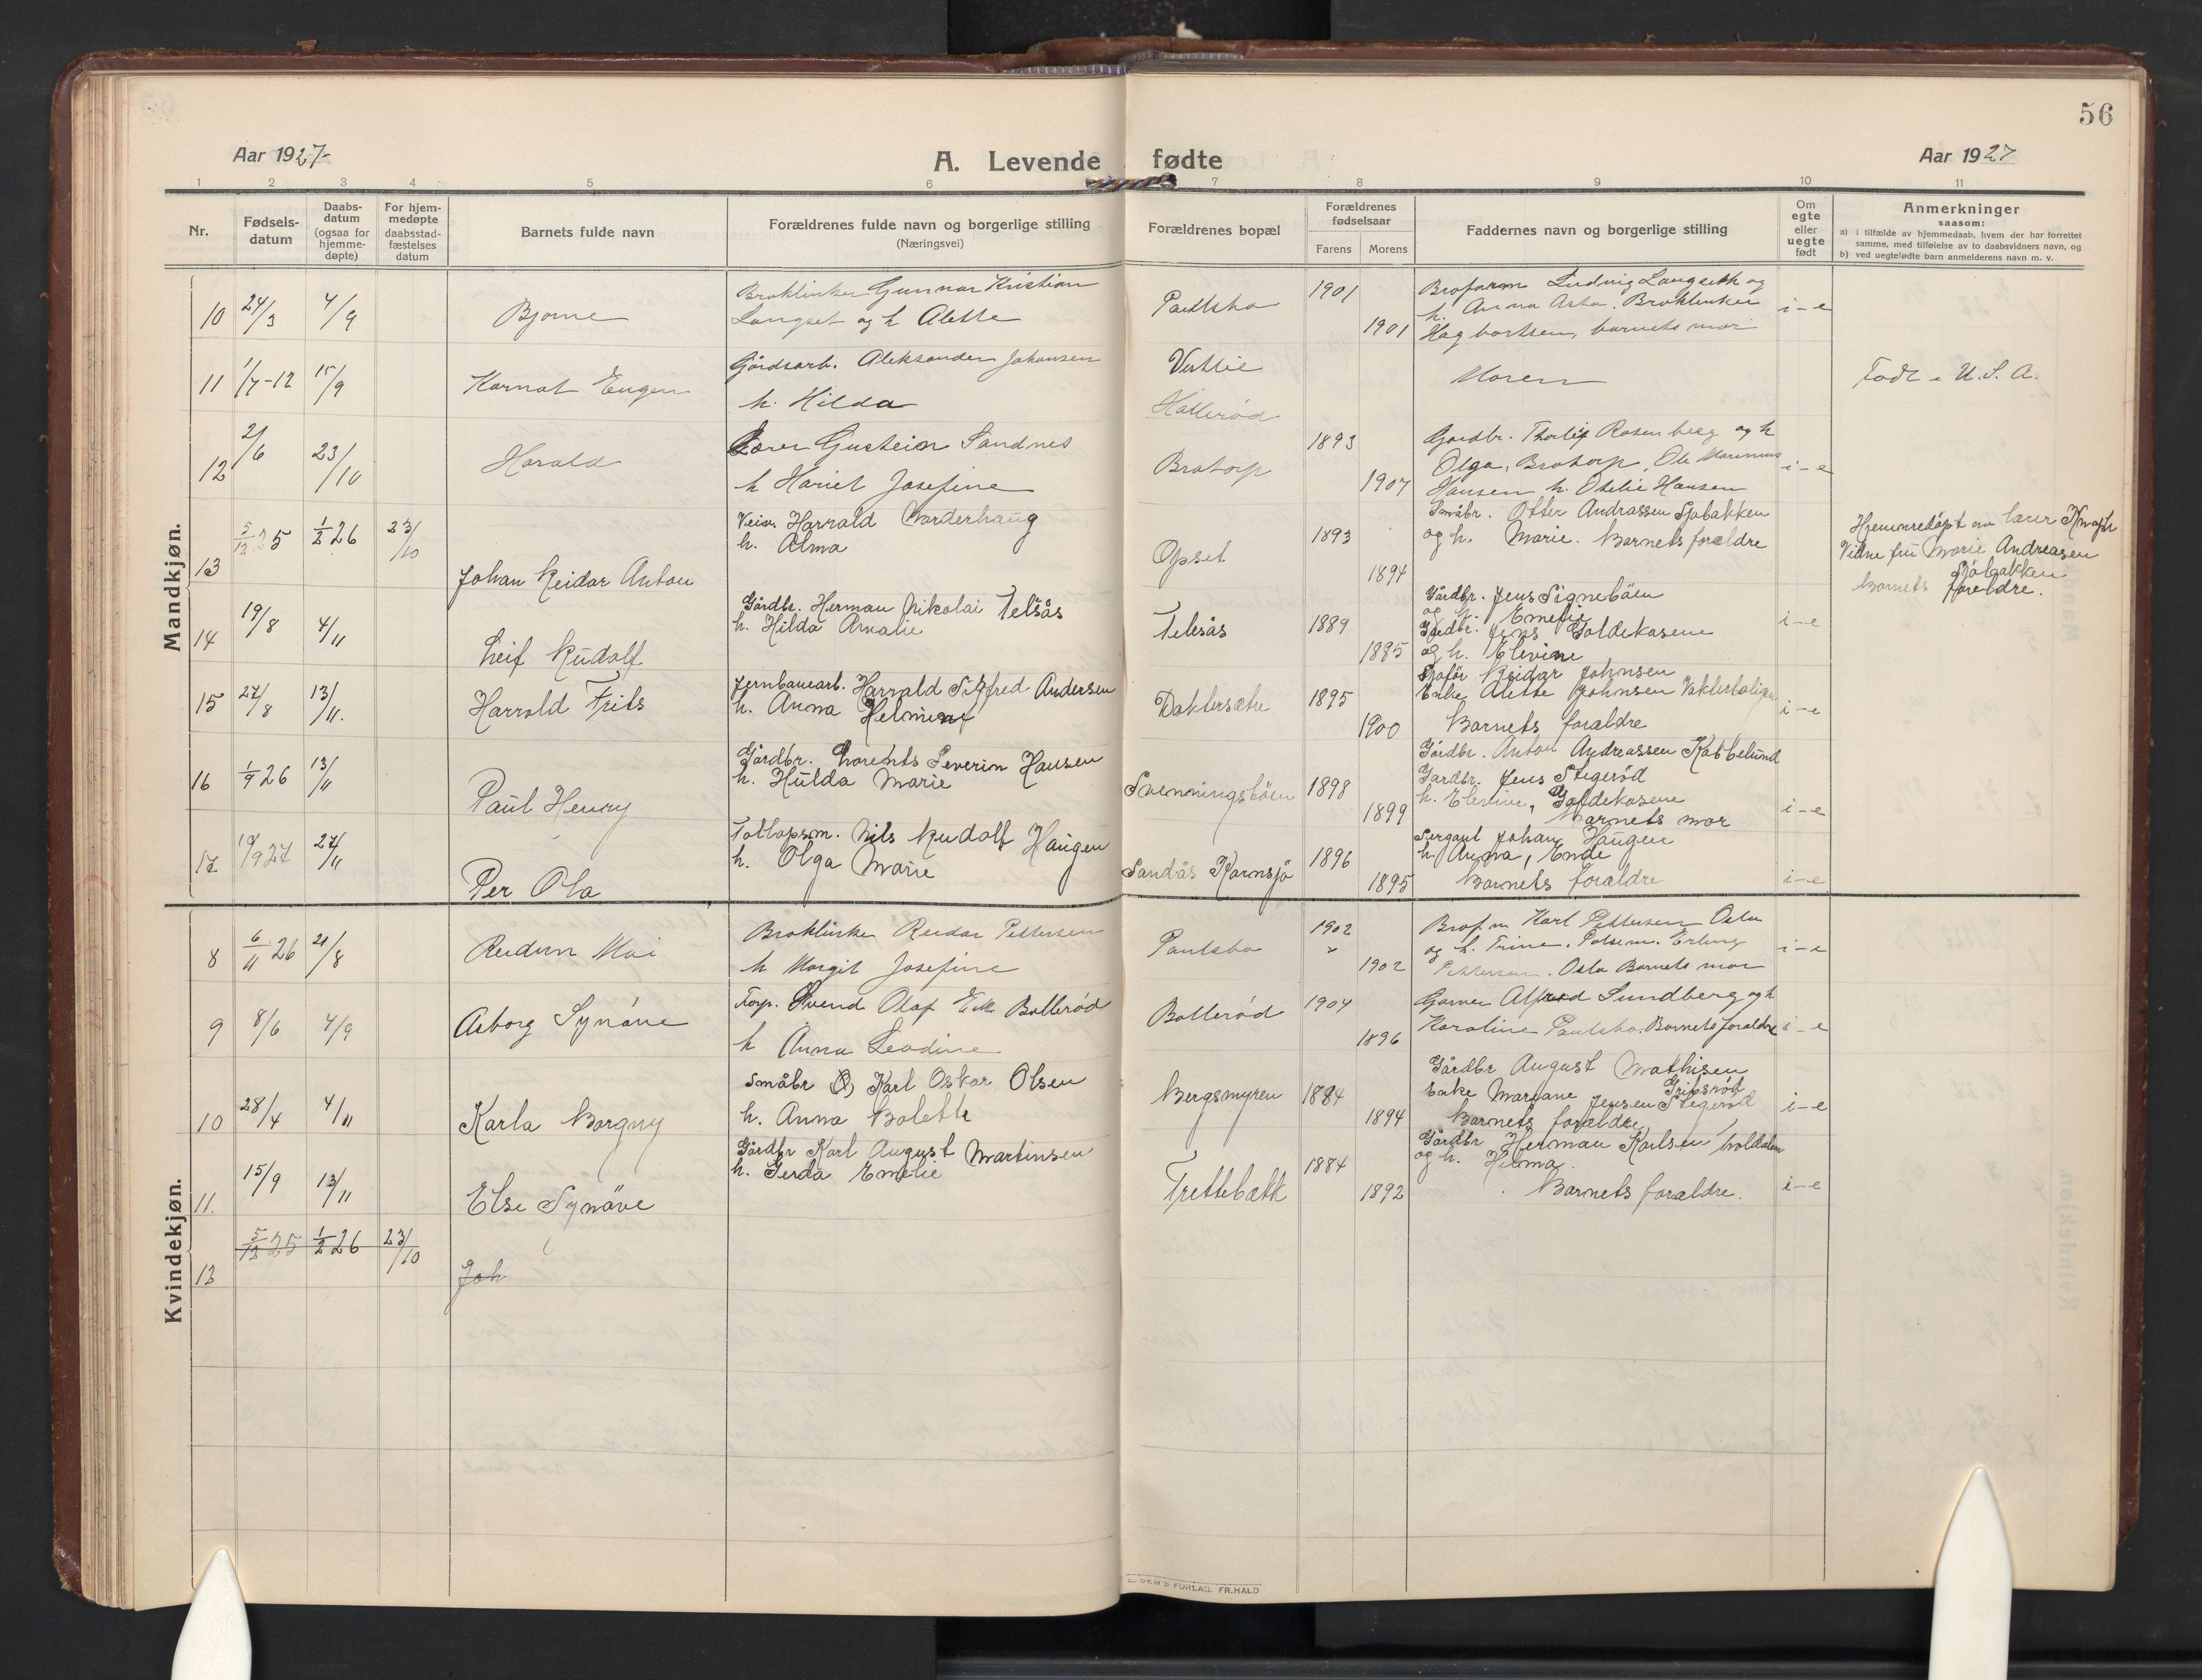 56
Aar 1927-
A. Levende fødte
Aar 1927
1 2 3 4 5 6 7 8 9 10 11
Nr.
Fødsels-
datum
Daabs-
datum
(ogsaa for
hjemme-
døpte)
For hjem-
medøpte
daabsstad-
fæstelses
datum
Barnets fulde navn
Forældrenes fulde navn og borgerlige stilling
(Næringsvei)
Forældrenes bopæl
Forældrenes
fødselsaar
Farens Morens
Faddernes navn og borgerlige stilling
Om
egte
eller
uegte
født
Anmerkninger
saasom:
a) i tilfælde av hjemmedaab, hvem der har forrettet
samme, med tilføielse av to daabsvidners navn, og
b) ved uegtefødte barn anmelderens navn m. v.
Mandkjøn.
10 24/3 4/9 Bjorne
Gunnar Kristian
Langset og h Alette
1901
1901
Ludvig Langseth og
h. Anna Asta.
barnets mor
i-e
11 1/7-12 15/9 Eugen
Gårdsarb. Aleksander Johansen
h. Hilda
Vestlie
Hallerød
Moren
Født i U.S.A.
12 2/6 23/10 Harald
Lærer Gustein Sandnes
h Hariet Josefine
Bratorp
1893
1907
Gardbr. Thorleif Rosenberg og h
Olga, Bratorp, Ole Marinius
Hansen h. Otelie Hansen
i-e
13 5/12 25 1/2 26 23/10
Johan Reidar Anton
Harrald Norderhaug
h. Alma
Opset
1893
1894
Småbr. Otter Andrassen Sjøbakken
og h. Marie. Barnets forældre
Hjemmedøpt av lærer
Vidne fru Marie Andreasen
Barnets foreldre.
14 19/8 4/11 Leif Rudolf
Gårdbr. Herman Nikolai Telsås
h. Hilda Amalie
Telsås
1889
1885
Gårdbr. Jens Signebøen
og h. Emelie
Gårdbr. Jens Goldekasene
og h. Elevine
i-e
15 27/8 13/11. Harrald Frits
Jernbanearb. Harrald Sigfred Andersen
h. Anna
1895
1900
Sjafør Reidar Johnsen
Enke Alette Johnsen
Barnets forældre
i-e
16 1/9 26 13/11 Paul Henry
Gårdbr. Lorents Severin Hansen
h. Hulda Marie
Svenningsbøen
1898
1899
Gårdbr. Anton Andreassen
Gardbr. Jens Stegerød
Barnets mor
i-e
17 27/11 Per Ola
Nils Rudolf Haugen
h. Olga Marie
Sandås Kornsjø
1896
1895
Sergant Johan Haugen
h. Anna,
Barnets forældre
i-e
Kvindekjøn.
8 6/11 26 21/8 Reidun Mai
Reidar Pettersen
h Margit Josefine
Paulsbo
1902
1902
Karl Pettersen Oslo
og h. Trine. Erling
Pettersen. Oslo Barnets mor
i-e
9 8/6 4/9 Asborg Synøve
Svend Olaf Bollerød
h Anna Leodine
Bollerød
1904
1896
Alfred Sundberg og h
Karoline Paulsbo. Barnets forældre
i-e
10 28/4 4/11 Karla Borgny
Småbr Karl Oskar Olsen
h. Anna Bolette
Bergsmyren
1884
1894
Gårdbr August Mathisen
Enke Margane Jensen Stegerød
Barnets forældre
i-e
11. 15/9 13/11 Else Synøve
Gårdbr Karl August Martinsen
h. Gerda Emelie
Trettebakk
1884
1892
Gårdbr Herman Karlsen
og h. Hilma.
Barnets forældre.
i-e
12 5/12 25 1/2 26 23/10
Joh
FORLAG. FR. HALD